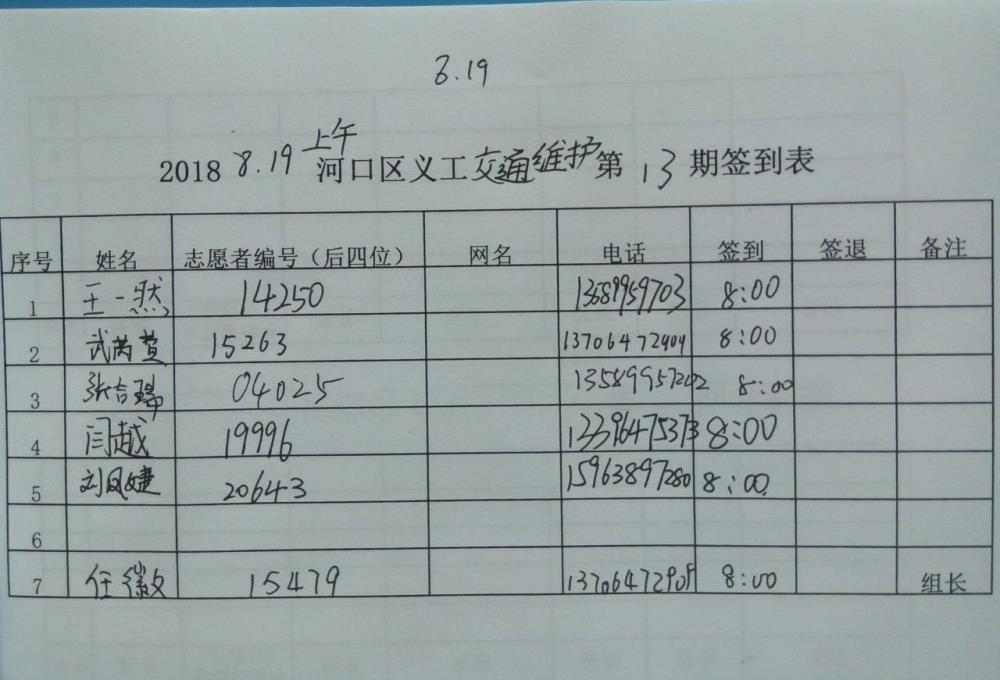 8.19
2018 8.19 上午 河口区义工交通维护第 13 期签到表
序号 姓名 志愿者编号（后四位） 网名 电话 签到 签退 备注
1 王一然 14250 13589959703 8:00
2 武芮萱 15263 13706472909 8:00
3 张吉瑞 04025 13589957202 8:00
4 闫越 19996 13396475373 8:00
5 刘凤婕 20643 15963897280 8:00
6
7 任徽 15479 13706472909 8:00 组长